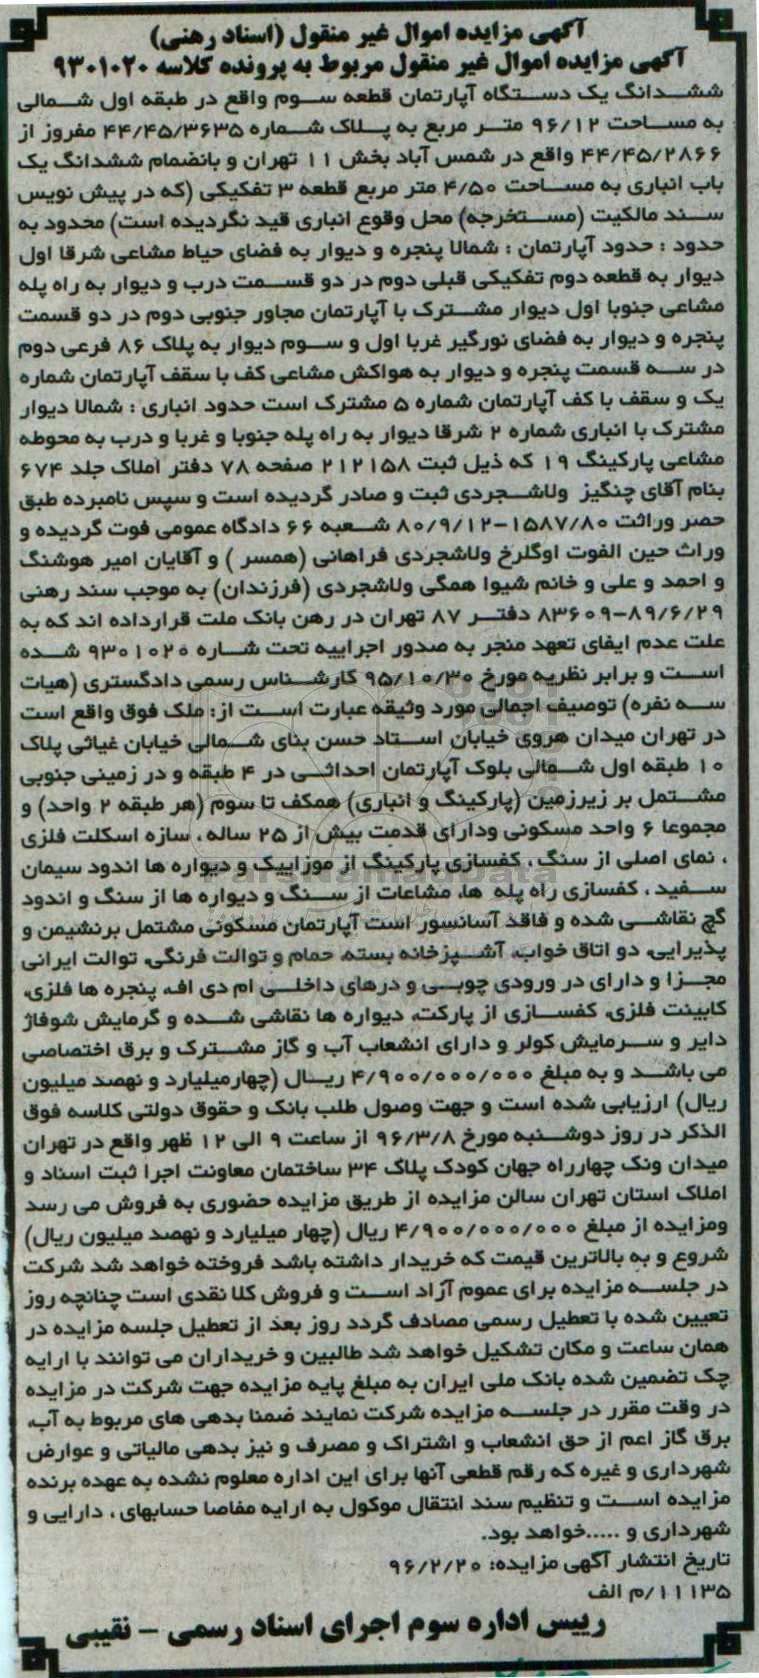 آگهی مزایده اموال غیر منقول (اسناد رهنی)
آگهی مزایده اموال غیر منقول مربوط به پرونده کلاسه ۹۳۰۱۰۲۰
ششدانگ یک دستگاه آپارتمان قطعه سوم واقع در طبقه اول شمالی
به مساحت ۹۶/۱۲ متر مربع به پلاک شماره ۴۴/۴۵/۳۶۳۵ مفروز از
۴۴/۴۵/۲۸۶۶ واقع در شمس آباد بخش ۱۱ تهران و بانضمام ششدانگ یک
باب انباری به مساحت ۴/۵۰ متر مربع قطعه ۳ تفکیکی (که در پیش نویس
سند مالکیت (مستخرجه) محل وقوع انباری قید نگردیده است) محدود به
حدود : حدود آپارتمان : شمالا پنجره و دیوار به فضای حیاط مشاعی شرقا اول
دیوار به قطعه دوم تفکیکی قبلی دوم در دو قسمت درب و دیوار به راه پله
مشاعی جنوبا اول دیوار مشترک با آپارتمان مجاور جنوبی دوم در دو قسمت
پنجره و دیوار به فضای نورگیر غربا اول و سوم دیوار به پلاک ۸۶ فرعی دوم
در سه قسمت پنجره و دیوار به هواکش مشاعی کف با سقف آپارتمان شماره
یک و سقف با کف آپارتمان شماره ۵ مشترک است حدود انباری : شمالا دیوار
مشترک با انباری شماره ۲ شرقا دیوار به راه پله جنوبا و غربا و درب به محوطه
مشاعی پارکینگ ۱۹ که ذیل ثبت ۲۱۲۱۵۸ صفحه ۷۸ دفتر املاک جلد ۶۷۴
بنام آقای چنگیز ولاشجردی ثبت و صادر گردیده است و سپس نامبرده طبق
حصر وراثت ۱۵۸۷/۸۰-۸۰/۹/۱۲ شعبه ۶۶ دادگاه عمومی فوت گردیده و
وراث حین الفوت اوگلرخ ولاشجردی فراهانی (همسر ) و آقایان امیر هوشنگ
و احمد و علی و خانم شیوا همگی ولاشجردی (فرزندان) به موجب سند رهنی
۸۳۶۰۹-۸۹/۶/۲۹ دفتر ۸۷ تهران در رهن بانک ملت قرارداده اند که به
علت عدم ایفای تعهد منجر به صدور اجراییه تحت شماره ۹۳۰۱۰۲۰ شده
است و برابر نظریه مورخ ۹۵/۱۰/۳۰ کارشناس رسمی دادگستری (هیات
سه نفره) توصیف اجمالی مورد وثیقه عبارت است از: ملک فوق واقع است
در تهران میدان هروی خیابان استاد حسن بنای شمالی خیابان غیاثی پلاک
۱۰ طبقه اول شمالی بلوک آپارتمان احداثی در ۴ طبقه و در زمینی جنوبی
مشتمل بر زیرزمین (پارکینگ و انباری) همکف تا سوم (هر طبقه ۲ واحد) و
مجموعا ۶ واحد مسکونی ودارای قدمت بیش از ۲۵ ساله ، سازه اسکلت فلزی
، نمای اصلی از سنگ ، کفسازی پارکینگ از موزاییک و دیواره ها اندود سیمان
سفید ، کفسازی راه پله ها، مشاعات از سنگ و دیواره ها از سنگ و اندود
گچ نقاشی شده و فاقد آسانسور است آپارتمان مسکونی مشتمل برنشیمن و
پذیرایی، دو اتاق خواب، آشپزخانه بسته، حمام و توالت فرنگی، توالت ایرانی
مجزا و دارای در ورودی چوبی و درهای داخلی ام دی اف، پنجره ها فلزی،
کابینت فلزی، کفسازی از پارکت، دیواره ها نقاشی شده و گرمایش شوفاژ
دایر و سرمایش کولر و دارای انشعاب آب و گاز مشترک و برق اختصاصی
می باشد و به مبلغ ۴/۹۰۰/۰۰۰/۰۰۰ ریال (چهارمیلیارد و نهصد میلیون
ریال) ارزیابی شده است و جهت وصول طلب بانک و حقوق دولتی کلاسه فوق
الذکر در روز دوشنبه مورخ ۹۶/۳/۸ از ساعت ۹ الی ۱۲ ظهر واقع در تهران
میدان ونک چهارراه جهان کودک پلاک ۳۴ ساختمان معاونت اجرا ثبت اسناد و
املاک استان تهران سالن مزایده از طریق مزایده حضوری به فروش می رسد
ومزایده از مبلغ ۴/۹۰۰/۰۰۰/۰۰۰ ریال (چهار میلیارد و نهصد میلیون ریال)
شروع و به بالاترین قیمت که خریدار داشته باشد فروخته خواهد شد شرکت
در جلسه مزایده برای عموم آزاد است و فروش کلا نقدی است چنانچه روز
تعیین شده با تعطیل رسمی مصادف گردد روز بعد از تعطیل جلسه مزایده در
همان ساعت و مکان تشکیل خواهد شد طالبین و خریداران می توانند با ارایه
چک تضمین شده بانک ملی ایران به مبلغ پایه مزایده جهت شرکت در مزایده
در وقت مقرر در جلسه مزایده شرکت نمایند ضمنا بدهی های مربوط به آب،
برق گاز اعم از حق انشعاب و اشتراک و مصرف و نیز بدهی مالیاتی و عوارض
شهرداری و غیره که رقم قطعی آنها برای این اداره معلوم نشده به عهده برنده
مزایده است و تنظیم سند انتقال موکول به ارایه مفاصا حسابهای ، دارایی و
شهرداری و .....خواهد بود.
تاریخ انتشار آگهی مزایده: ۹۶/۲/۲۰
۱۱۱۳۵/م الف
رییس اداره سوم اجرای اسناد رسمی – نقیبی